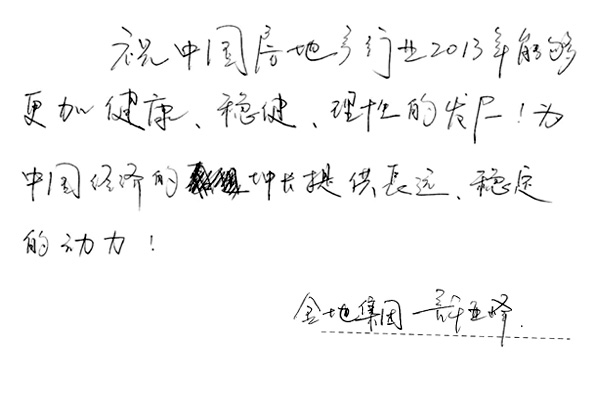 祝中国房地产行业2013年能够
更加健康、稳健、理性的发展！为
中国经济的增长提供长远、稳定
的动力！
金地集团 許亚峰